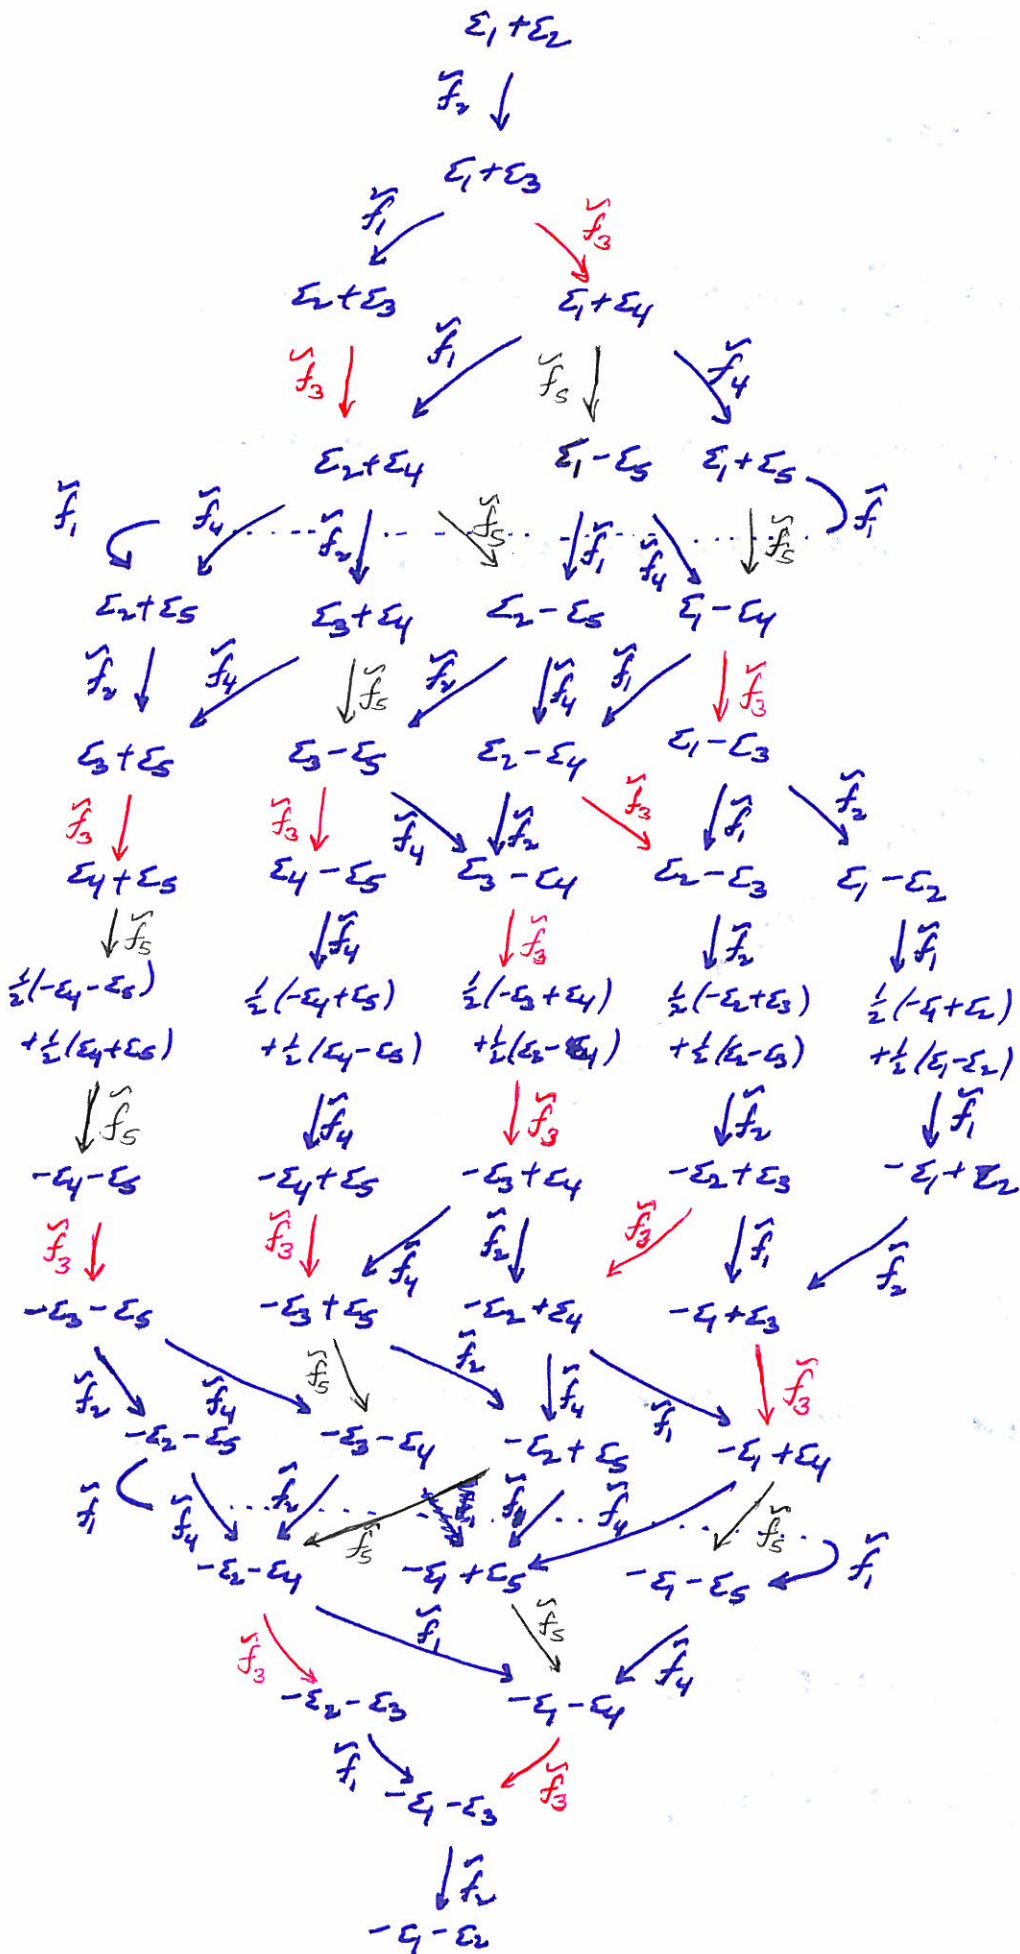 ε₁+ε₂
f̃₂
ε₁+ε₃
f̃₁ f̃₃
ε₂+ε₃ ε₁+ε₄
f̃₃ f̃₁ f̃₅ f̃₄
ε₂+ε₄ ε₁-ε₅ ε₁+ε₅
f̃₁ f̃₄ f̃₂ f̃₅ f̃₁ f̃₄ f̃₅ f̃₁
ε₂+ε₅ ε₃+ε₄ ε₂-ε₅ ε₁-ε₄
f̃₂ f̃₄ f̃₅ f̃₂ f̃₄ f̃₁ f̃₃
ε₃+ε₅ ε₃-ε₅ ε₂-ε₄ ε₁-ε₃
f̃₃ f̃₃ f̃₄ f̃₂ f̃₃ f̃₁ f̃₂
ε₄+ε₅ ε₄-ε₅ ε₃-ε₄ ε₂-ε₃ ε₁-ε₂
f̃₅ f̃₄ f̃₃ f̃₂ f̃₁
½(-ε₄-ε₅) ½(-ε₄+ε₅) ½(-ε₃+ε₄) ½(-ε₂+ε₃) ½(-ε₁+ε₂)
+½(ε₄+ε₅) +½(ε₄-ε₅) +½(ε₃-ε₄) +½(ε₂-ε₃) +½(ε₁-ε₂)
f̃₅ f̃₄ f̃₃ f̃₂ f̃₁
-ε₄-ε₅ -ε₄+ε₅ -ε₃+ε₄ -ε₂+ε₃ -ε₁+ε₂
f̃₃ f̃₃ f̃₄ f̃₂ f̃₃ f̃₁ f̃₂
-ε₃-ε₅ -ε₃+ε₅ -ε₂+ε₄ -ε₁+ε₃
f̃₂ f̃₄ f̃₅ f̃₂ f̃₄ f̃₁ f̃₃
-ε₂-ε₅ -ε₃-ε₄ -ε₂+ε₅ -ε₁+ε₄
f̃₁ f̃₄ f̃₂ f̃₅ f̃₄ f̃₅ f̃₁
-ε₂-ε₄ -ε₁+ε₅ -ε₁-ε₅
f̃₃ f̃₁ f̃₅ f̃₄
-ε₂-ε₃ -ε₁-ε₄
f̃₁ f̃₃
-ε₁-ε₃
f̃₂
-ε₁-ε₂